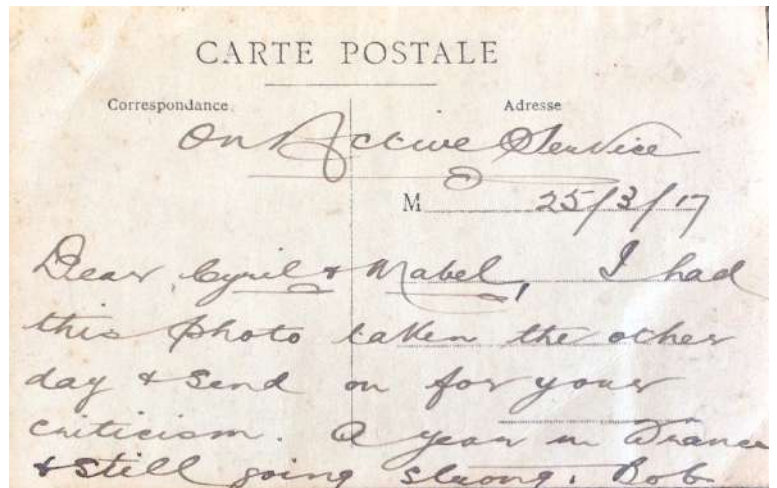 CARTE POSTALE
Correspondance. Adresse
On Active Service
M 25/3/17
Dear Cyril & Mabel, I had
this photo taken the other
day & send on for your
criticism. A year in France
& still going strong. Bob